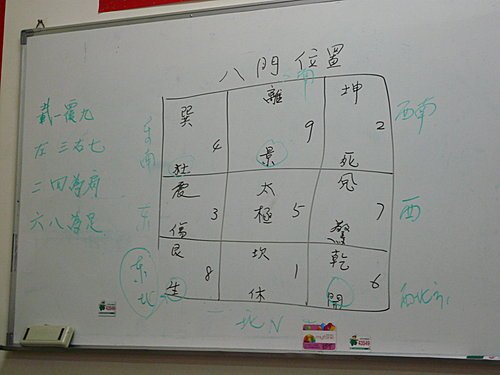 八門位置
南
戴一履九
左三右七
二四為肩
六八為足
東南
巽 4 杜
離 9 景
坤 2 死
西南
東
震 3 傷
太極 5
7 驚
西
东北
艮 8 生
坎 1 休
乾 6 開
西北
北 N